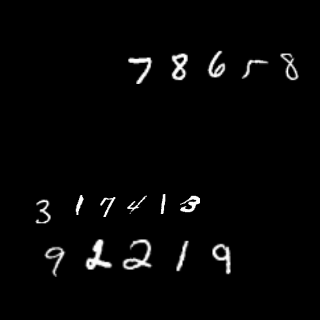 78658
317413
92219